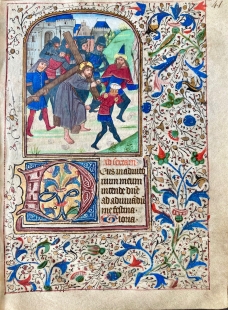 41
ad sextam
Deus in adiuto
rium meum
intende dñe
ad adiuuādū
me festina
Gloria